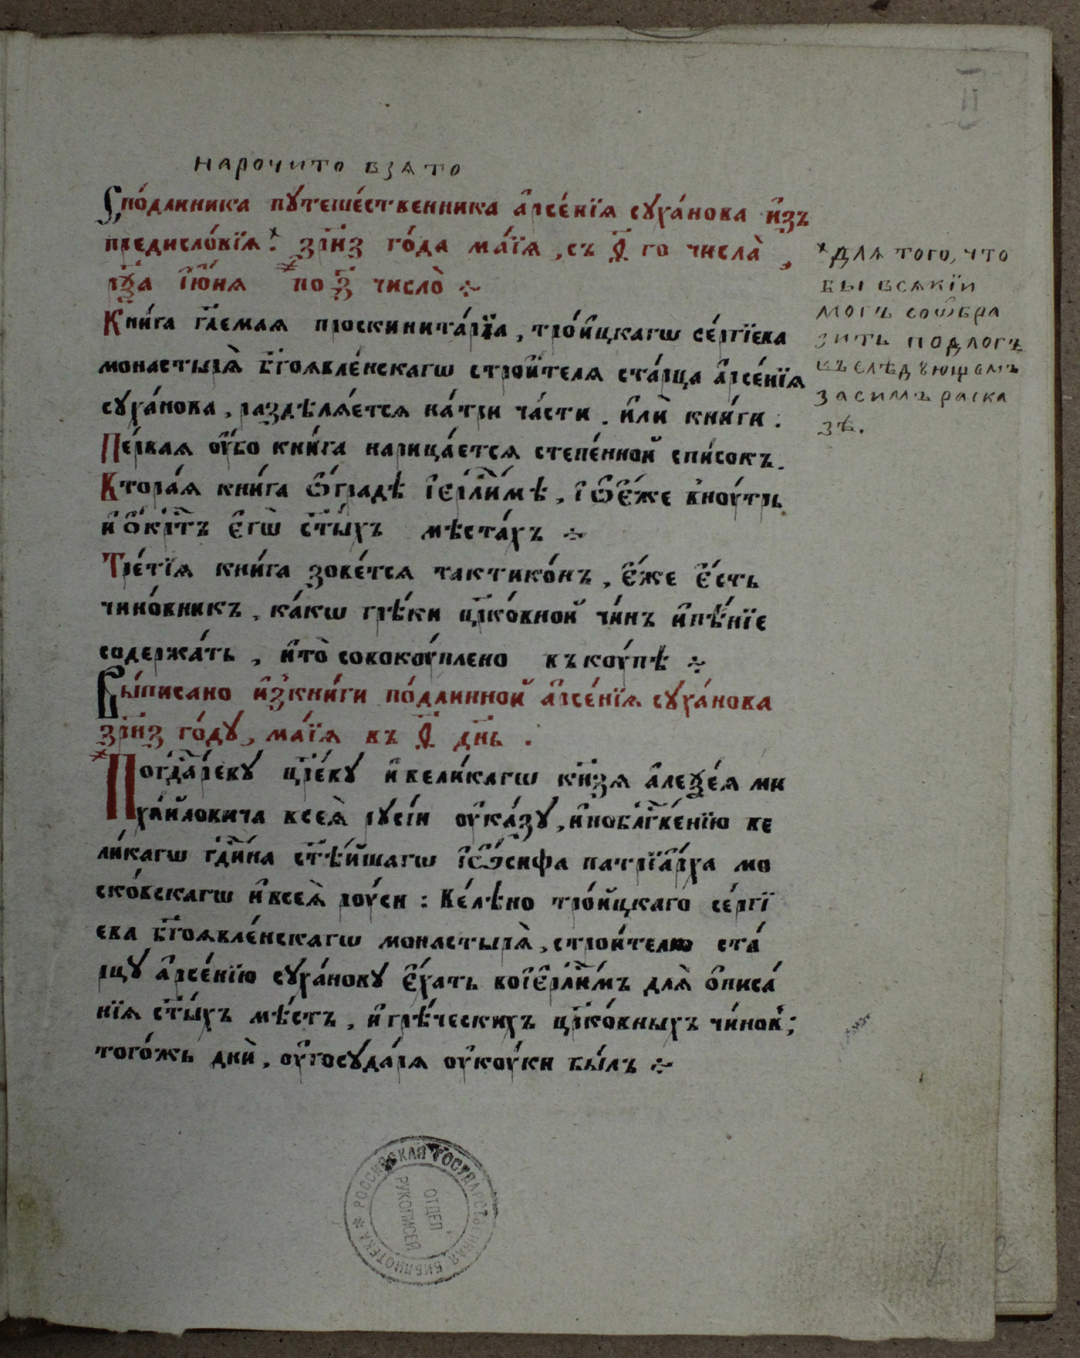 II
нарочито взято
Сподлинника пꙋтеше́ственника а҆рсе́нїѧ сꙋха́нова и҆зъ
предисло́вїѧ. ҂зр҃нз го́да ма́їѧ, съ го числа̀,
і҆ю́нѧ по число̀ ⁘
Кни́га гл҃емая проскинита́рїа, тро́йцкагѡ се́ргїева
монастырѧ̀ бг҃оявле́нскагѡ строи́телѧ ста́рца а҆рсе́нїѧ
сꙋха́нова, раздѣлѧ́ется на три ча́сти. и҆лѝ кни́ги:
Пе́рвая оу҆́бо кни́га нарица́ется степе́нной спи́сокъ.
Втора́я кни́га ѡ҆ гра́дѣ і҆ер҃ли́мѣ, і҆ ѡ҆ е҆́же внꙋтрь
и҆ ѡ҆́крⷭ҇тъ е҆гѡ̀ ст҃ы́хъ мѣста́хъ ⁘
Тре́тїя кни́га зове́тсѧ тактико́нъ, е҆́же е҆́сть
чино́вникъ, ка́кѡ гре́ки цр҃ко́вной чи́нъ и҆ пѣ́нїе
содержа́ть, и҆ то̀ совокоу́плено въ коу́пѣ ⁘
Вы́писано и҆з кни́ги по́длинной а҆рсе́нїѧ сꙋха́нова
҂зр҃нз го́дꙋ, ма́їѧ въ дн҃ь.
По гдⷭ҇ревꙋ цр҃е́вꙋ и҆ вели́кагѡ кн҃зя а҆леѯе́ѧ ми
ха́йловича всеѧ̀ рꙋсі́и оу҆ка́зꙋ, и҆ по блгⷭ҇ве́нїю ве
ли́кагѡ гдⷭ҇и́на ст҃ѣ́йшагѡ і҆ѡ҆́сифа патрїа́рха мо
ско́вскагѡ и҆ всеѧ̀ роу́си: Велѣ́но тро́йцкаго се́ргї
ева бг҃оявле́нскагѡ монастырѧ̀, строи́телю ста́
рцꙋ а҆рсе́нїю сꙋха́новꙋ е҆́хать во і҆ер҃ли́мъ длѧ̀ ѻ҆писа́
нїя ст҃ы́хъ мѣ́стъ, и҆ гре́ческихъ цр҃ко́вныхъ чино́въ;
того́жь днѝ, оу҆ госꙋда́рѧ оу҆ роу́ки бы́лъ ⁘
× для того, что
бы всякїи
могъ соѡбра
зить подлогъ
въ слѣдующемъ
за симъ раска
зѣ.
РОССИЙСКАЯ ГОСУДАРСТВЕННАЯ БИБЛИОТЕКА
ОТДЕЛ
РУКОПИСЕЙ